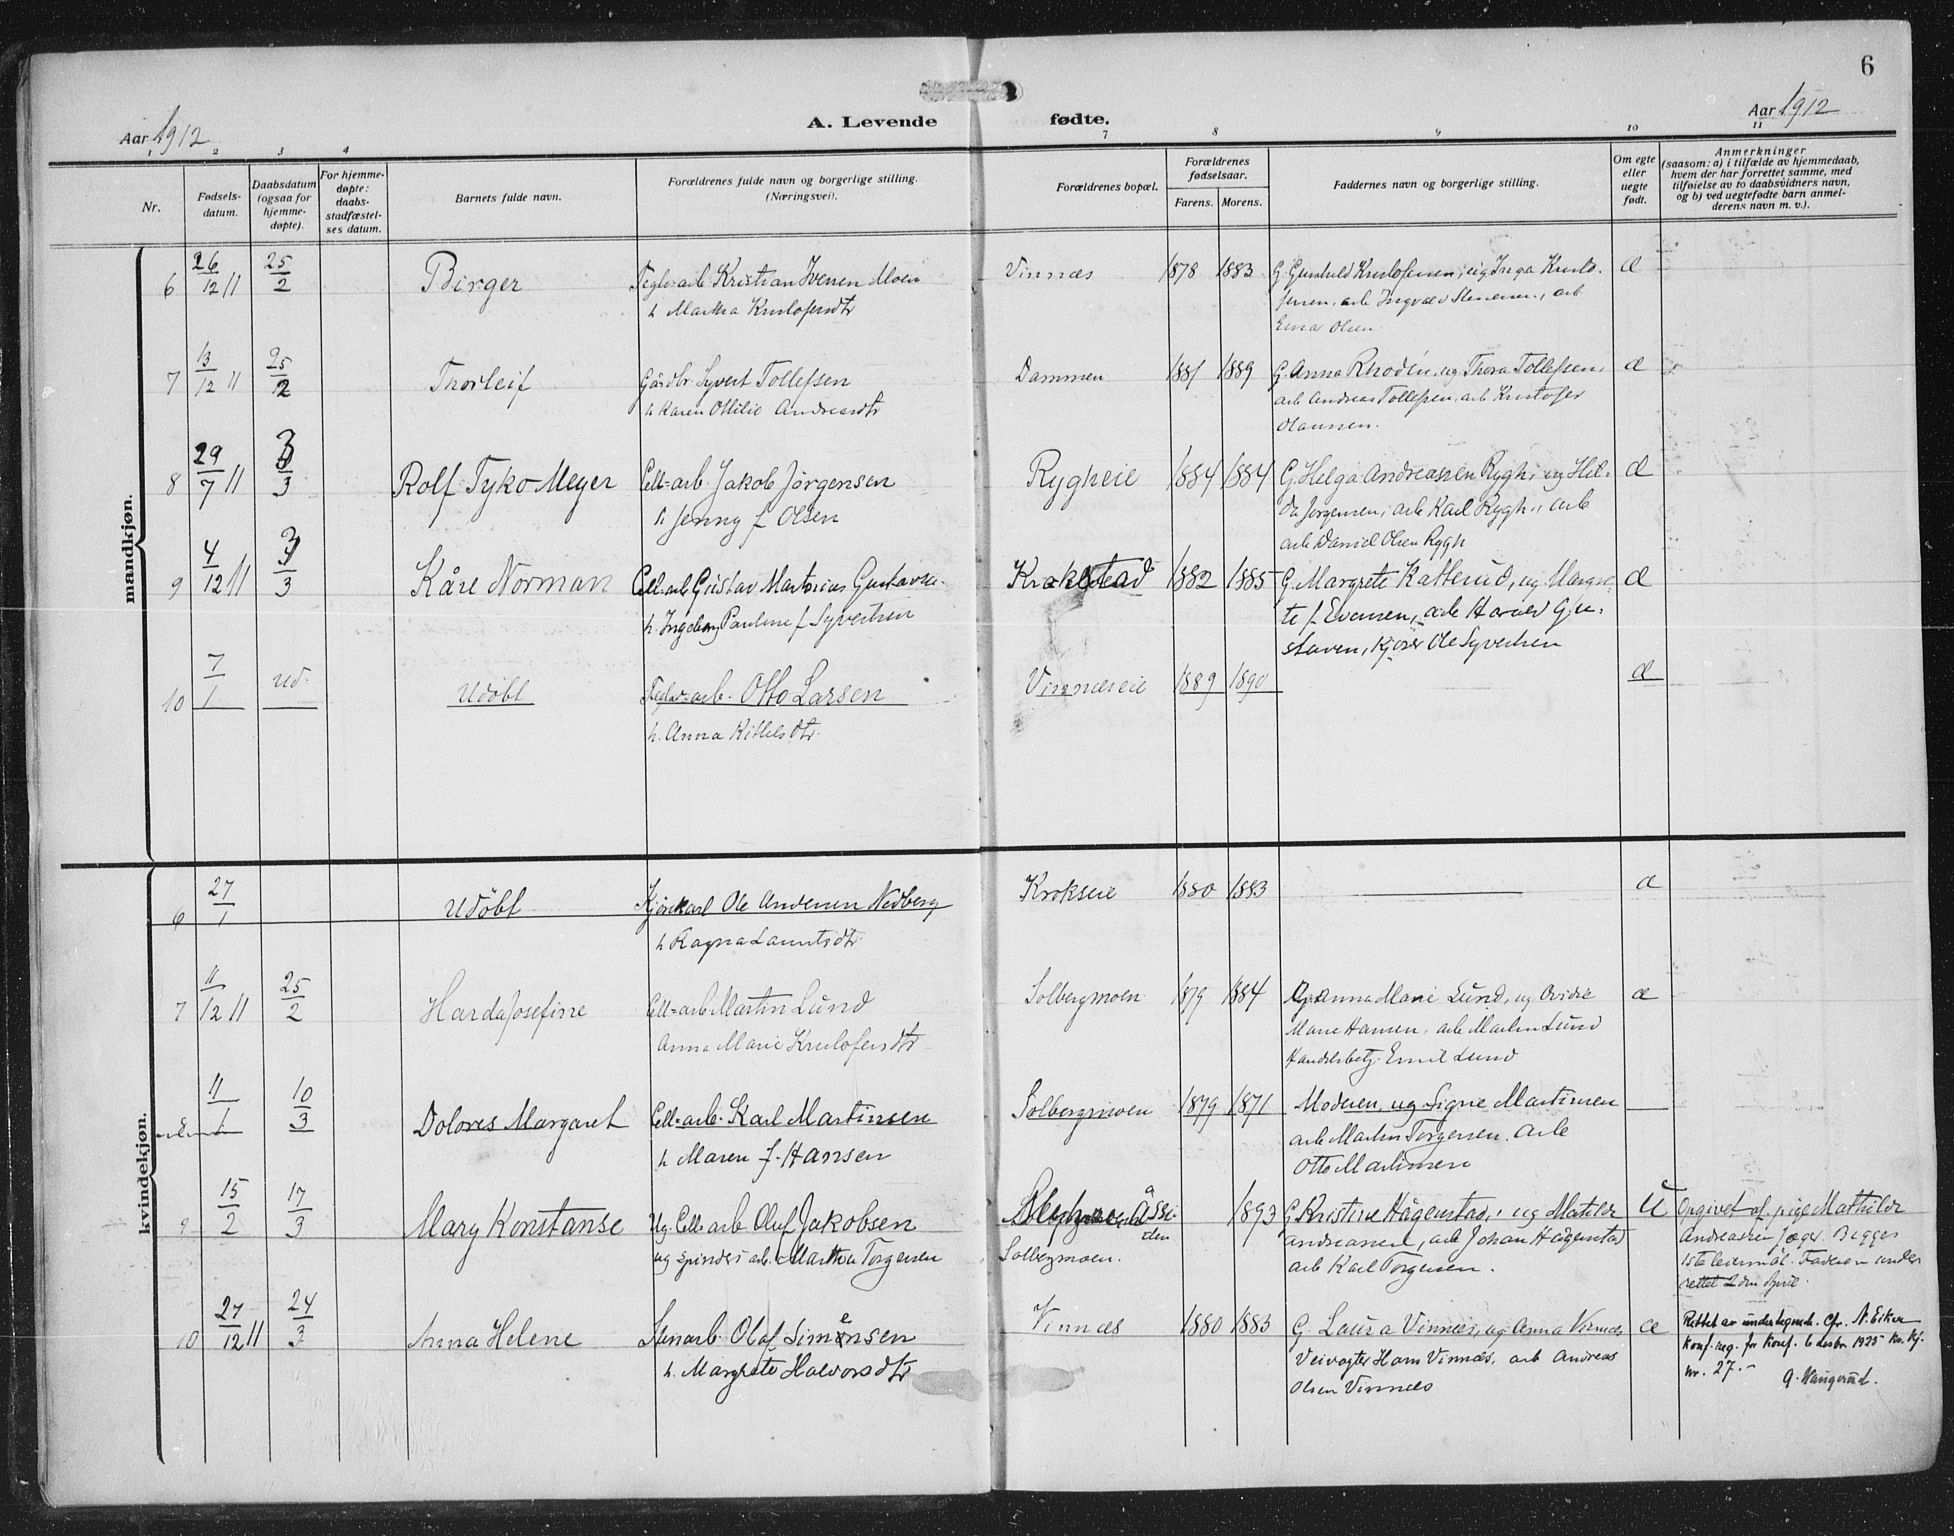 6
Aar 1912
A. Levende fødte.
Aar 1912
1 2 3 4 7 8 9 10 11
Nr.
Fødsels-
datum.
Daabsdatum
(ogsaa for
hjemme-
døpte).
For hjemme-
døpte:
daabs-
stadfæstel-
ses datum.
Barnets fulde navn.
Forældrenes fulde navn og borgerlige stilling.
(Næringsvei).
Forældrenes bopæl.
Forældrenes
fødselsaar.
Farens. Morens.
Faddernes navn og borgerlige stilling.
Om egte
eller
uegte
født.
Anmerkninger
(saasom: a) i tilfælde av hjemmedaab,
hvem der har forrettet samme, med
tilføielse av to daabsvidners navn,
og b) ved uegtefødte barn anmel-
derens navn m. v.).
mandkjøn.
6 26/12 11 25/2 Birger Teglv=arb Kristian Iversen Moen Vinnæs 1878 1883
h. Martha Kristofersdtr
Einar Olsen
7 13/12 11 25/2 Thorleif Gårdbr Syvert Tollefsen Dammen 1881 1889 G. Anna Rhodin, ug Thora Tollefsen,
h Karen Ottilie Andreasdtr arb Andreas Tollefsen, arb Kristofer
Olaussen.
8 29/7 11 3/3 Rolf Tyko Meyer Cell=arb. Jakob Jørgensen Rygheie 1884 1884 G. Helga Andreassen Rygh, ug Hil-
h Jenny f Olsen da Jørgensen, arb Karl Rygh, arb
arb Daniel Olsen Rygh
9 4/12 11 3/3 Kåre Norman Cell=arb Gustav Martinius Gustavsen Krokstad 1882 1885 G. Margrete Katterud, ug Margre-
h. Ingeborg Pauline f Syvertsen te f. Evensen, arb Harald Gu-
staven, kjører Ole Syvertsen
10 7/1 ud. Udöbt Teglv=arb. Otto Larsen Vinnæseie 1889 1890
h. Anna Kittelsdtr.
kvindekjøn.
6 27/1 Udöbt Kjørekarl Ole Andersen Nedberg Krokseie 1880 1883
h Ragna Lauritsdtr
7 11/12 11 25/2 Harda Josefine Cell=arb Martin Lund Solbergmoen 1879 1884 G. Anna Marie Lund, ug Ovidie
Anna Marie Kristofersdtr Marie Hansen, arb Martin Lund
Handelsbetj. Emil Lund
8 11/1 10/3 Dolores Margaret Cell=arb. Karl Martinsen Solbergmoen 1879 1871 Moderen, ug Signe Martinsen
h Maren f. Hansen arb Martin Torgersen. arb
Otto Martinsen
9 15/2 17/3 Mary Konstanse Ug Cell=arb Oluf Jakobsen Åssi- 1893 G Kristine Hågenstad, ug Matilde U Opgivet af pige Mathilde
den
ug spinderiarb. Martha Torgersen Solbergmoen. Andreassen, arb Johan Hågenstad Andreassen Jæger. Begges
arb Karl Torgersen. 1ste leiermål. Faderen under-
rettet 2den April.
10 27/12 11 24/3 Anna Helene Stenarb. Olaf Simensen Vinnæs 1880 1883 G. Laura Vinnæs, ug Anna Vinnæs
h. Margrete Halvorsdtr Veivogter Hans Vinnæs, arb Andreas
Olsen Vinnæs
Rettet av undertegnede. Cfr. N. Eiker
konf. reg. for konf. 6 desbr. 1925 kv. kj.
nr. 27.
A. Haugerud.